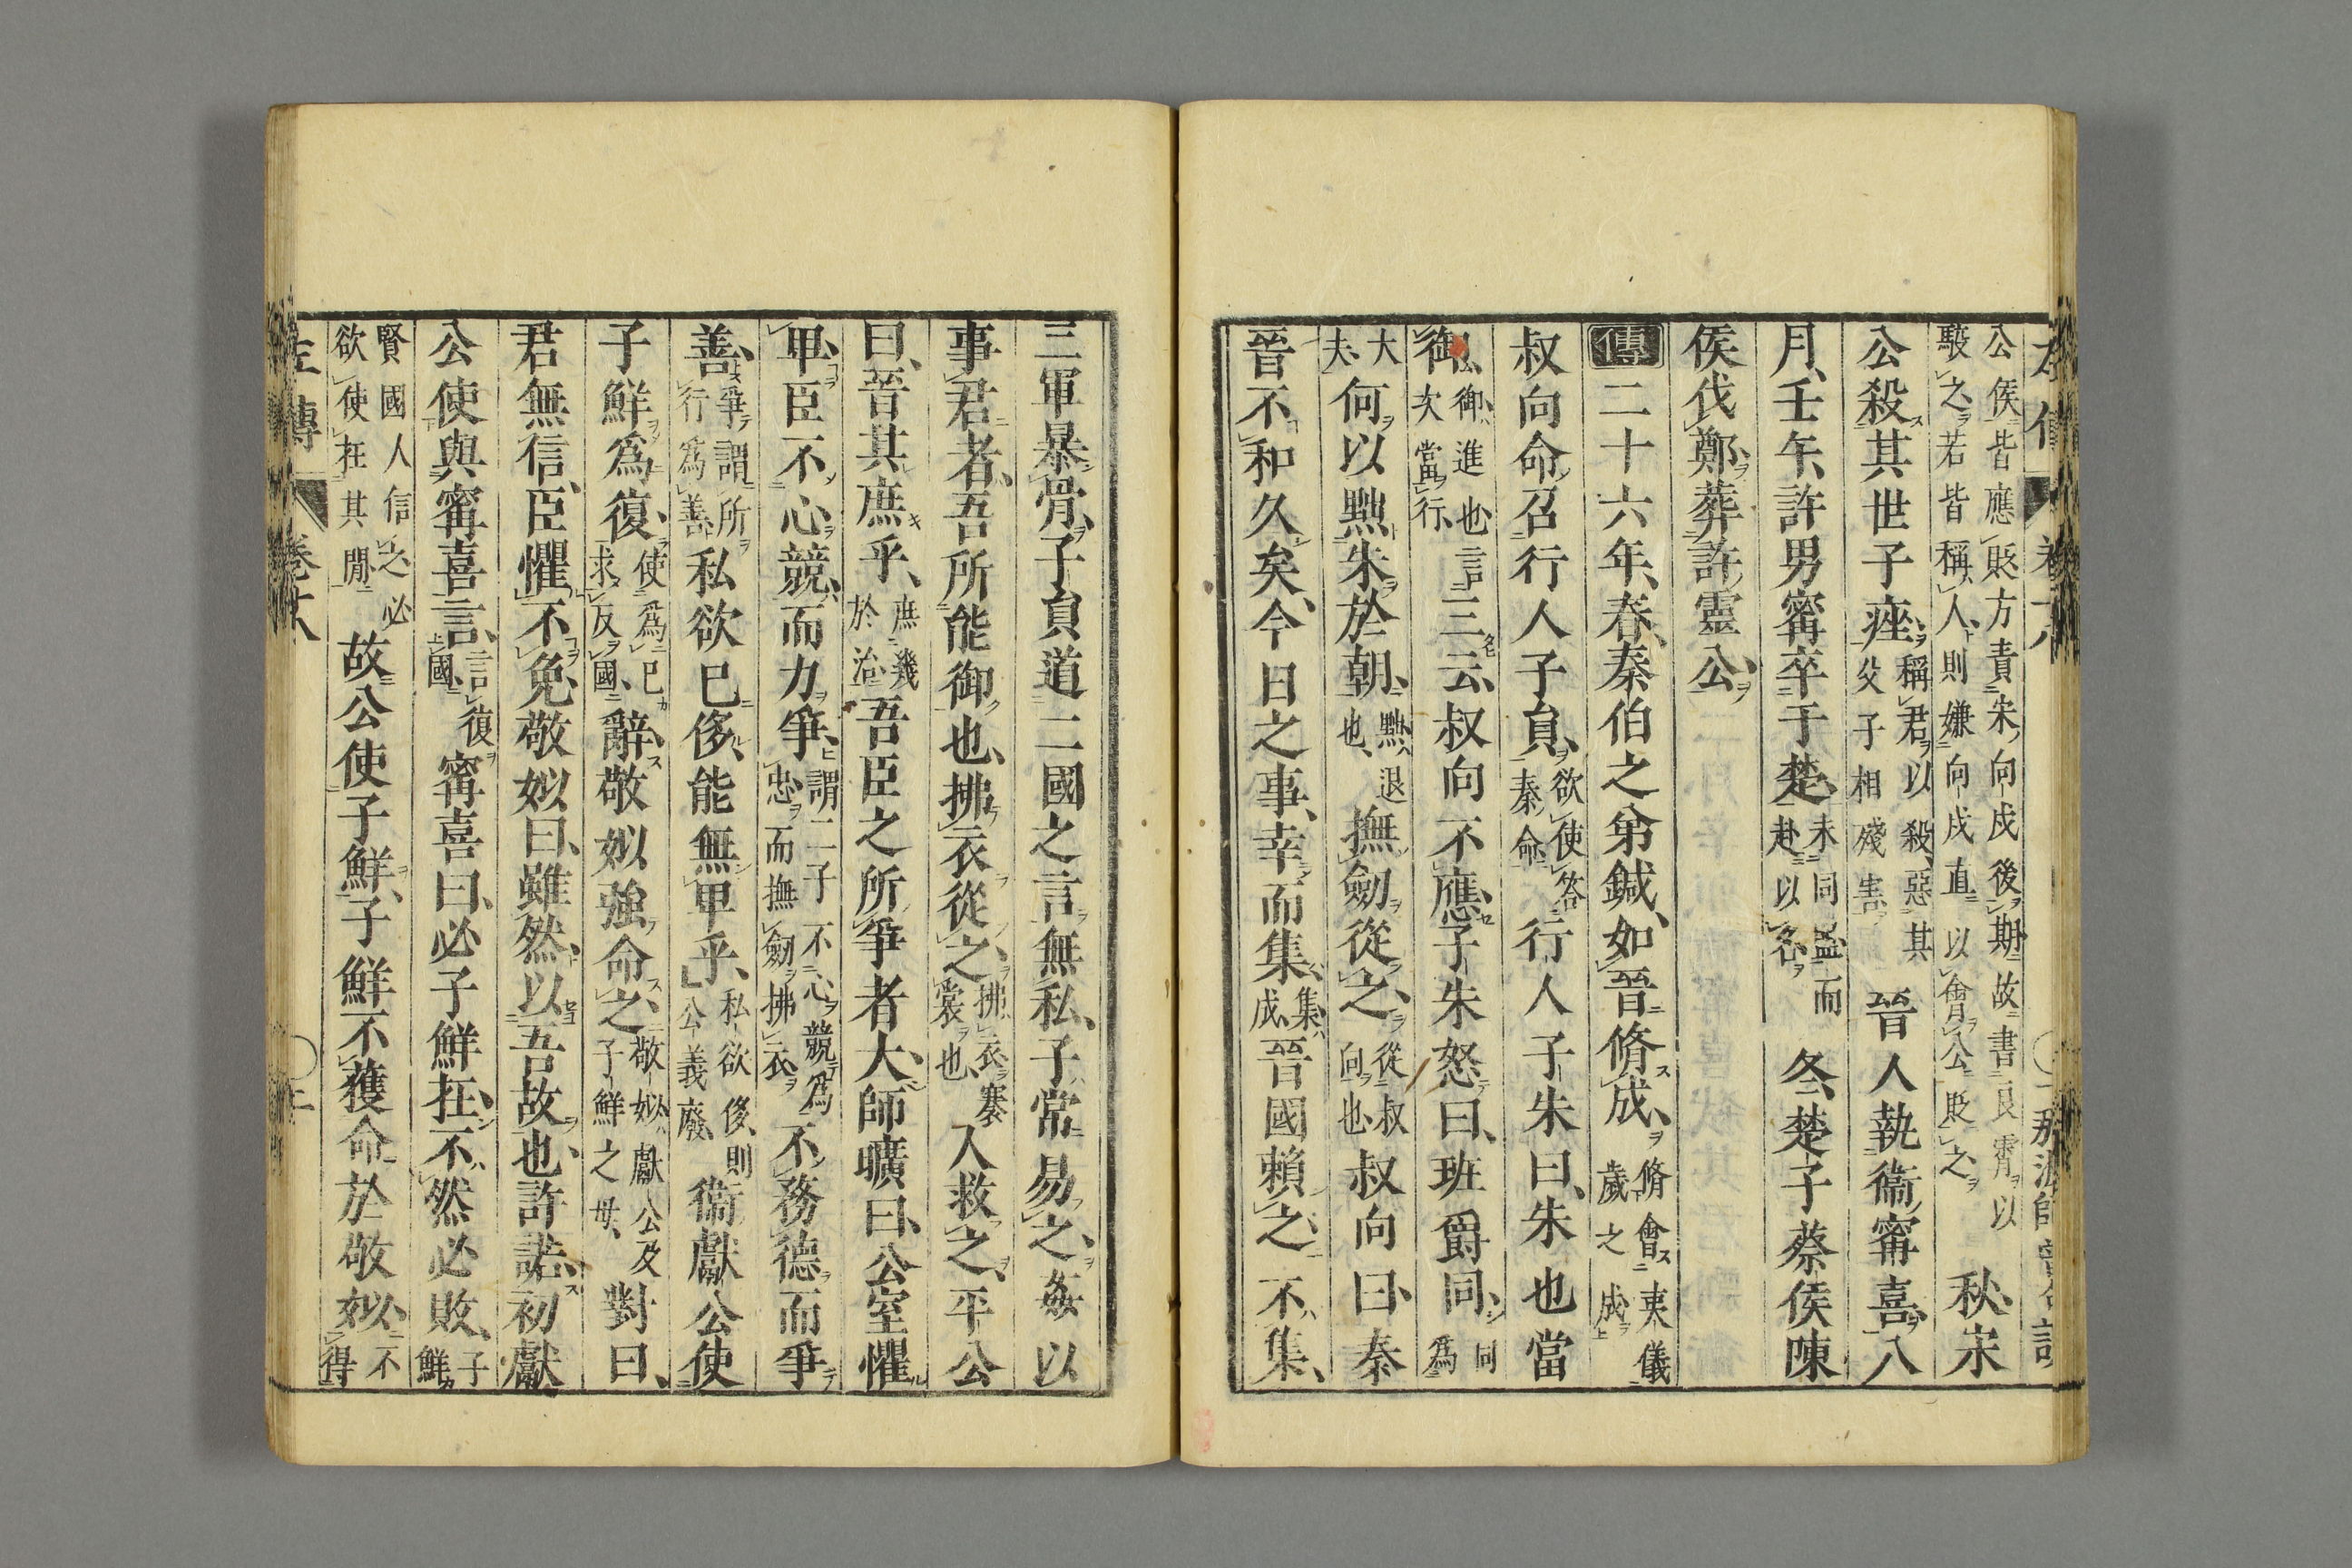 公侯皆應貶方責宋向戌後期故書良霄以
駮之若皆稱人則嫌向戌直以會公貶之秋宋
公殺其世子痤稱君以殺惡其父子相殘害晉人執衞甯喜八
月壬午許男甯卒于楚未同盟而赴以名冬楚子蔡侯陳
侯伐鄭葬許靈公
傳二十六年春秦伯之弟鍼如晉脩成脩會夷儀歲之成
叔向命召行人子員欲使答秦命行人子朱曰朱也當
御御進也言次當行三云叔向不應子朱怒曰班爵同同爲
大夫何以黜朱於朝黜退也撫劔從之從叔向也叔向曰秦
晉不和久矣今日之事幸而集集成晉國賴之不集
三軍暴骨子員道二國之言無私子常易之姦以
事君者吾所能御也拂衣從之拂衣褰裳也人救之平公
曰晉其庶乎庶幾於治吾臣之所爭者大師曠曰公室懼
卑臣不心競而力爭謂二子不心競爲忠而撫劔拂衣不務德而爭
善爭謂所行爲善私欲已侈能無卑乎私欲侈則公義廢衞獻公使
子鮮爲復使爲已求反國辭敬姒強命之敬姒獻公及子鮮之母對曰
君無信臣懼不免敬姒曰雖然以吾故也許諾初獻
公使與甯喜言言復國甯喜曰必子鮮在不然必敗子鮮
賢國人信之必欲使在其閒故公使子鮮子鮮不獲命於敬姒不得
左傳 卷十八